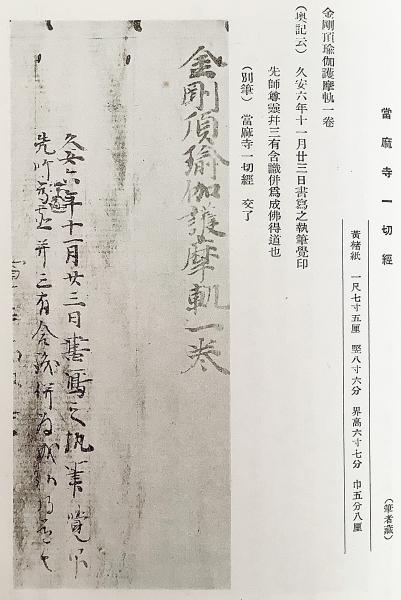 當麻寺一切經
(筆者藏)
黃楮紙 一尺七寸五厘 竪八寸六分 界高六寸七分 巾五分八厘
金剛頂瑜伽護摩軌一卷
(奥記云) 久安六年十一月廿三日書寫之執筆覺印
先師尊㚑幷三有含識併爲成佛得道也
(別筆) 當麻寺一切經 交了
金剛頂瑜伽護摩軌一卷
久安六年十一月廿三日書寫之執筆覺印
先師尊㚑幷三有含識併為成仏得道也